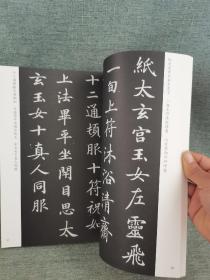 紙太玄宫玉女左靈飛
一旬上符沐浴清齋
十二通頓服十符祝如
上法畢平坐閉目思太
玄玉女十真人同服